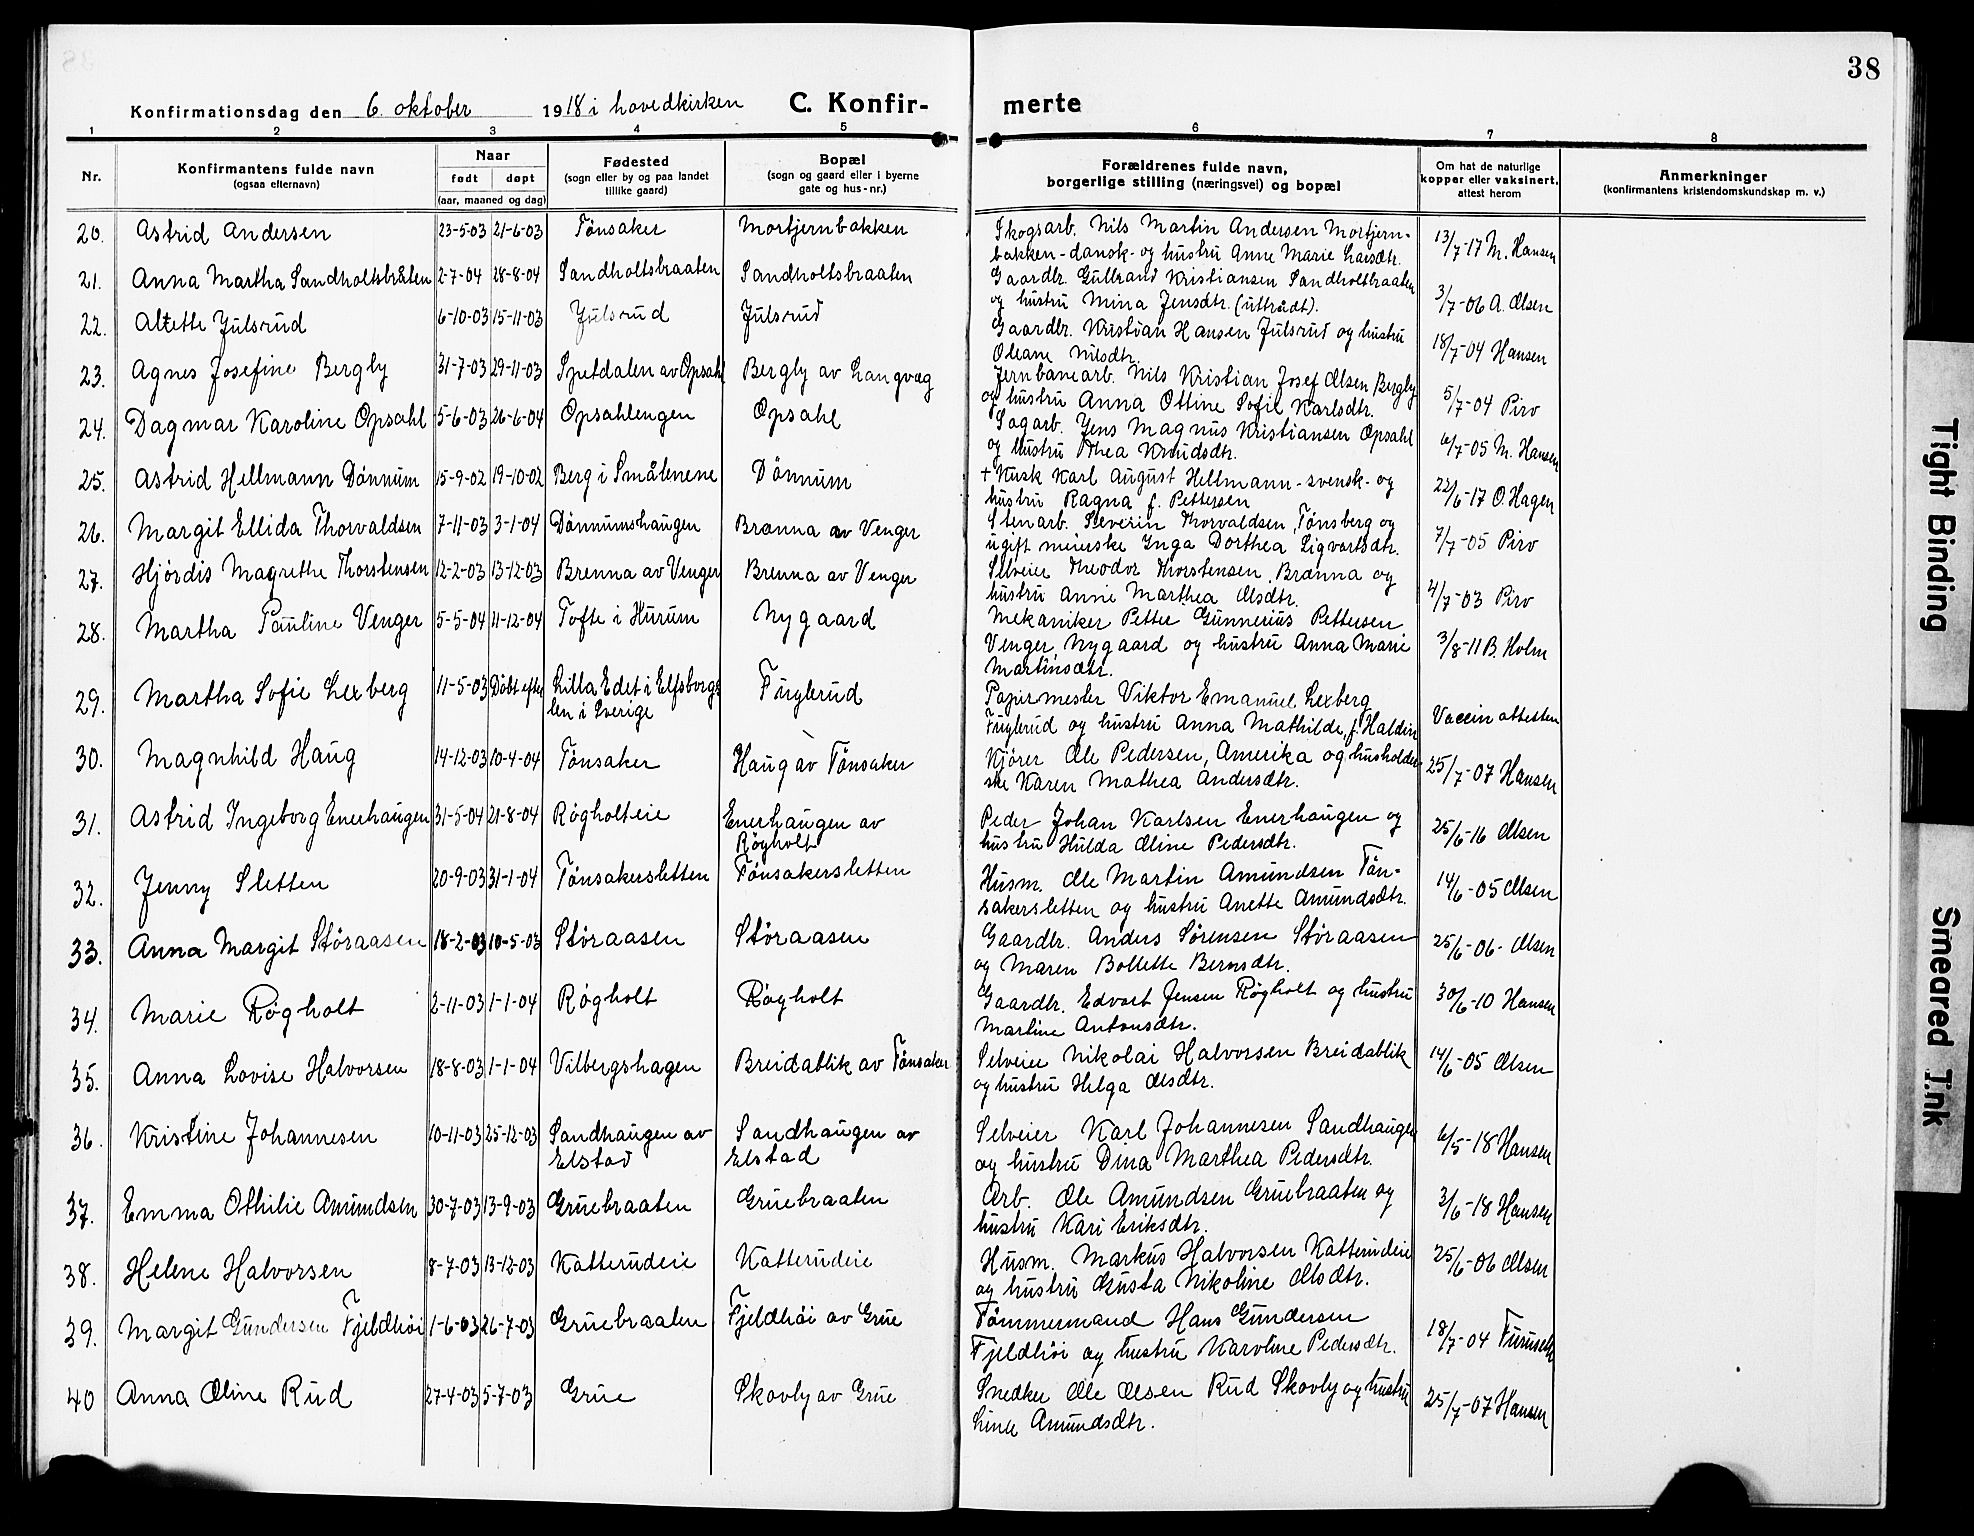 38
Konfirmationsdag den 6. oktober 1918 i hovedkirken C. Konfir-
merte
1 2 3 4 5 6 7 8
Nr.
Konfirmantens fulde navn
(ogsaa efternavn)
Naar
født døpt
(aar, maaned og dag)
Fødested
(sogn eller by og paa landet
tillike gaard)
Bopæl
(sogn og gaard eller i byerne
gate og hus-nr.)
Forældrenes fulde navn,
borgerlige stilling (næringsvei) og bopæl
Om hat de naturlige
kopper eller vaksinert,
attest herom
Anmerkninger
(konfirmantens kristendomskundskap m. v.)
20. Astrid Andersen 23-5-03 21-6-03 Tönsaker Mortjernbakken
Skogsarb. Nils Martin Andersen Mortjern-
bakken - dansk - og hustru Anne Marie Larsdtr.
13/7-17 M. Hansen
21. Anna Martha Sandholtsbråten 2-7-04 28-8-04 Sandholtsbraaten Sandholtsbraaten
Gaardbr. Gulbrand Kristiansen Sandholtbraaten
og hustru Mina Jensdtr. (uttrådt).
3/7-06 A. Olsen
22. Alette Julsrud 6-10-03 15-11-03 Julsrud Julsrud
Gaardbr. Kristian Hansen Julsrud og hustru
Oleane Nilsdtr.
18/7-04 Hansen
23. Agnes Josefine Bergby 31-7-03 29-11-03 Spetdalen av Opsahl Bergby av Langvæg
Jernbanearb. Nils Kristian Josef Olsen Bergby
og hustru Anna Ottine Sofie Karlsdtr.
5/7-04 Piro
24. Dagmar Karoline Opsahl 5-6-03 26-6-04 Opsahlengen Opsahl
Sagarb. Jens Magnus Kristiansen Opsahl
og hustru Thea Knudsdtr.
6/7-05 M. Hansen
25. Astrid Hellmann Dönnum 15-9-02 19-10-02 Berg i Smålenene Dönnum
+ Kusk Karl August Hellmann - svensk - og
hustru Ragna f. Pettersen
22/6-17 O. Hagen
26. Margit Ellida Thorvaldsen 7-11-03 3-1-04 Dönnumshaugen Brænna av Venger
Stenarb. Severin Thorvaldsen, Tönsberg og
ugift meierske Inga Dorthea Sigvartsdtr.
7/7-05 Piro
27. Hjördis Magrethe Thorstensen 12-2-03 13-12-03 Brenna av Venger Brenna av Venger
Selveier Theodor Thorstensen, Brænna og
hustru Anne Marthea Olsdtr.
4/7-03 Piro
28. Martha Pauline Venger 5-5-04 11-12-04 Tofte i Hurum Nygaard
Mekaniker Petter Gunnerius Pettersen
Venger, Nygaard og hustru Anna Marie
Martinsdtr.
3/8-11 B. Holm
29. Martha Sofie Lexberg 11-5-03 Döbt efter Lilla Edet i Elfsborgs
len i Sverige
Fuglerud
Papirmester Viktor Emanuel Lexberg
Fuglerud og hustru Anna Mathilde, f. Haldin
Vaccin attesten
30. Magnhild Haug 14-12-03 10-4-04 Tönsaker Haug av Tönsaker
Kjörer Ole Pedersen, Amerika og husholder-
ske Karen Mathea Andersdtr.
25/7-07 Hansen
31. Astrid Ingeborg Enerhaugen 31-5-04 21-8-04 Røgholteie Enerhaugen av
Røgholt
Peder Johan Karlsen Enerhaugen og
hustru Hulda Oline Pedersdtr.
25/6-16 Olsen
32. Jenny Sletten 20-9-03 31-1-04 Tönsakersletten Tönsakersletten
Husm. Ole Martin Amundsen Tön-
sakersletten og hustru Anette Amundsdtr.
14/6-05 Olsen
33. Anna Margit Støraasen 18-2-03 10-5-03 Støraasen Støraasen
Gaardbr. Anders Sørensen Støraasen
og Maren Bollette Bernsdtr.
25/6-06- Olsen
34. Marie Røgholt 2-11-03 1-1-04 Røgholt Røgholt
Gaardbr. Edvart Jensen Røgholt og hustru
Martine Antonsdtr.
30/6-10 Hansen
35. Anna Lovise Halvorsen 18-8-03 1-1-04 Vilbergshagen Breidablik av Tönsaker
Selveier Nikolai Halvorsen Breidablik
og hustru Helga Olsdtr.
14/6-05 Olsen
36. Kristine Johannesen 10-11-03 25-12-03 Sandhaugen av
Elstad
Sandhaugen av
Elstad
Selveier Karl Johannesen Sandhaugen
og hustru Dina Marthea Pedersdtr.
6/5-18 Hansen
37. Emma Othilie Amundsen 30-7-03 13-9-03 Gruebraaten Gruebraaten
Arb. Ole Amundsen Gruebraaten og
hustru Kari Eriksdtr.
3/6-18 Hansen
38. Helene Halvorsen 8-7-03 13-12-03 Katterudeie Katterudeie
Husm. Markus Halvorsen Katterudeie
og hustru Gusta Nikoline Olsdtr.
25/6-06 Olsen
39. Margit Gundersen Fjeldhöi 1-6-03 26-7-03 Gruebraaten Fjeldhöi av Grue
Tömmermand Hans Gundersen
Fjeldhöi og hustru Karoline Pedersdtr.
18/7-04 Furuseth
40 Anna Oline Rud 27-4-03 5-7-03 Grue Skovly av Grue
Snedker Ole Olsen Rud Skovly og hustru
Line Amundsdtr.
25/7-07 Hansen
Tight Binding
Smeared Ink